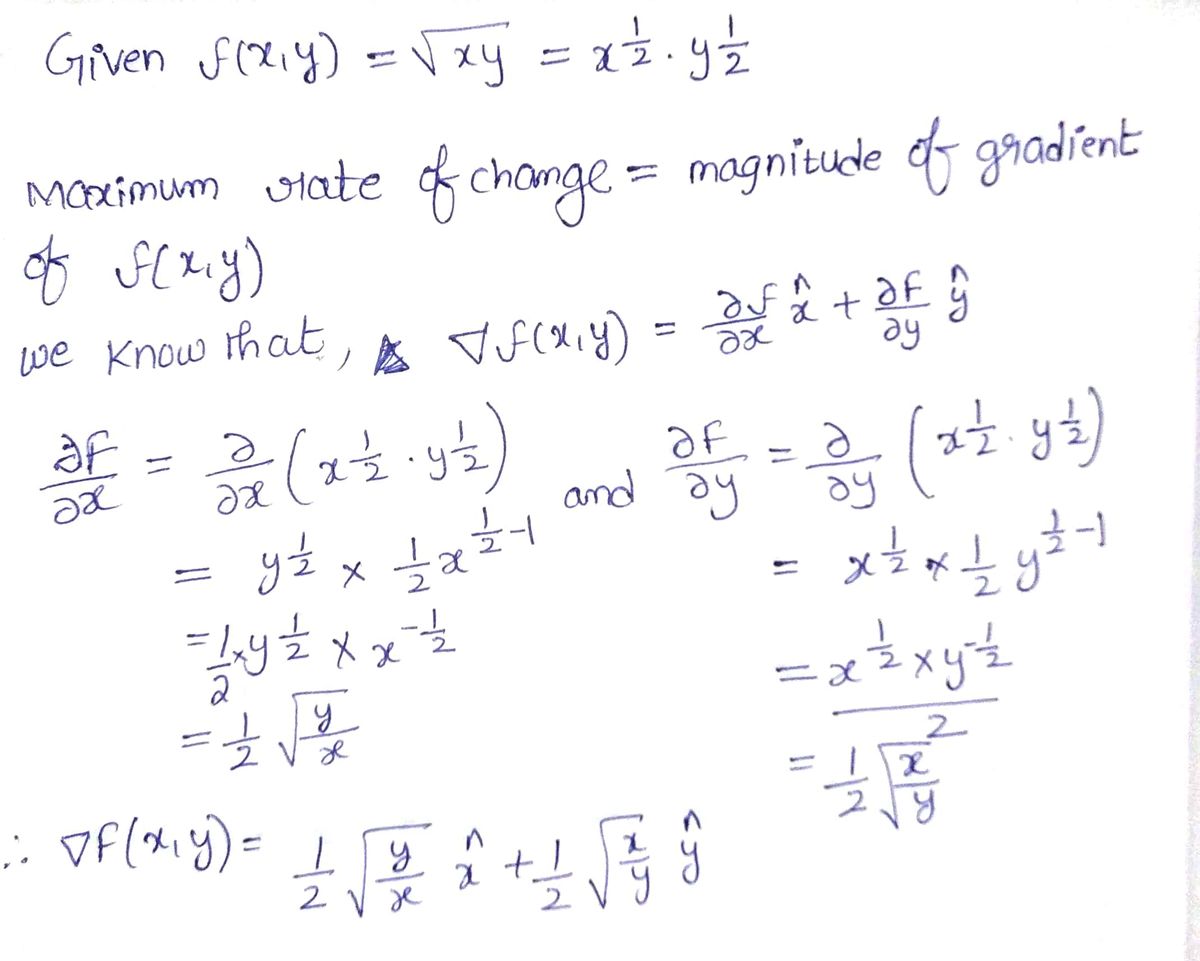 Given f(x,y) = √xy = x^1/2 · y^1/2
Maximum rate of change = magnitude of gradient
of f(x,y)
we know that, ∇f(x,y) = ∂f/∂x x̂ + ∂f/∂y ŷ
∂f/∂x = ∂/∂x (x^1/2 · y^1/2) and ∂f/∂y = ∂/∂y (x^1/2 · y^1/2)
= y^1/2 × 1/2 x^(1/2-1) = x^1/2 × 1/2 y^(1/2-1)
= 1/2 × y^1/2 × x^-1/2 = (x^1/2 × y^-1/2)/2
= 1/2 √(y/x) = 1/2 √(x/y)
∴ ∇f(x,y) = 1/2 √(y/x) x̂ + 1/2 √(x/y) ŷ